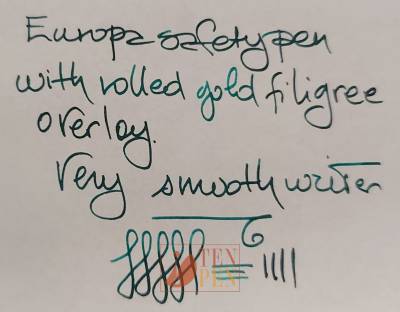 Europa safety pen
with rolled gold filigree
overlay.
Very smooth writer
TEN
PEN